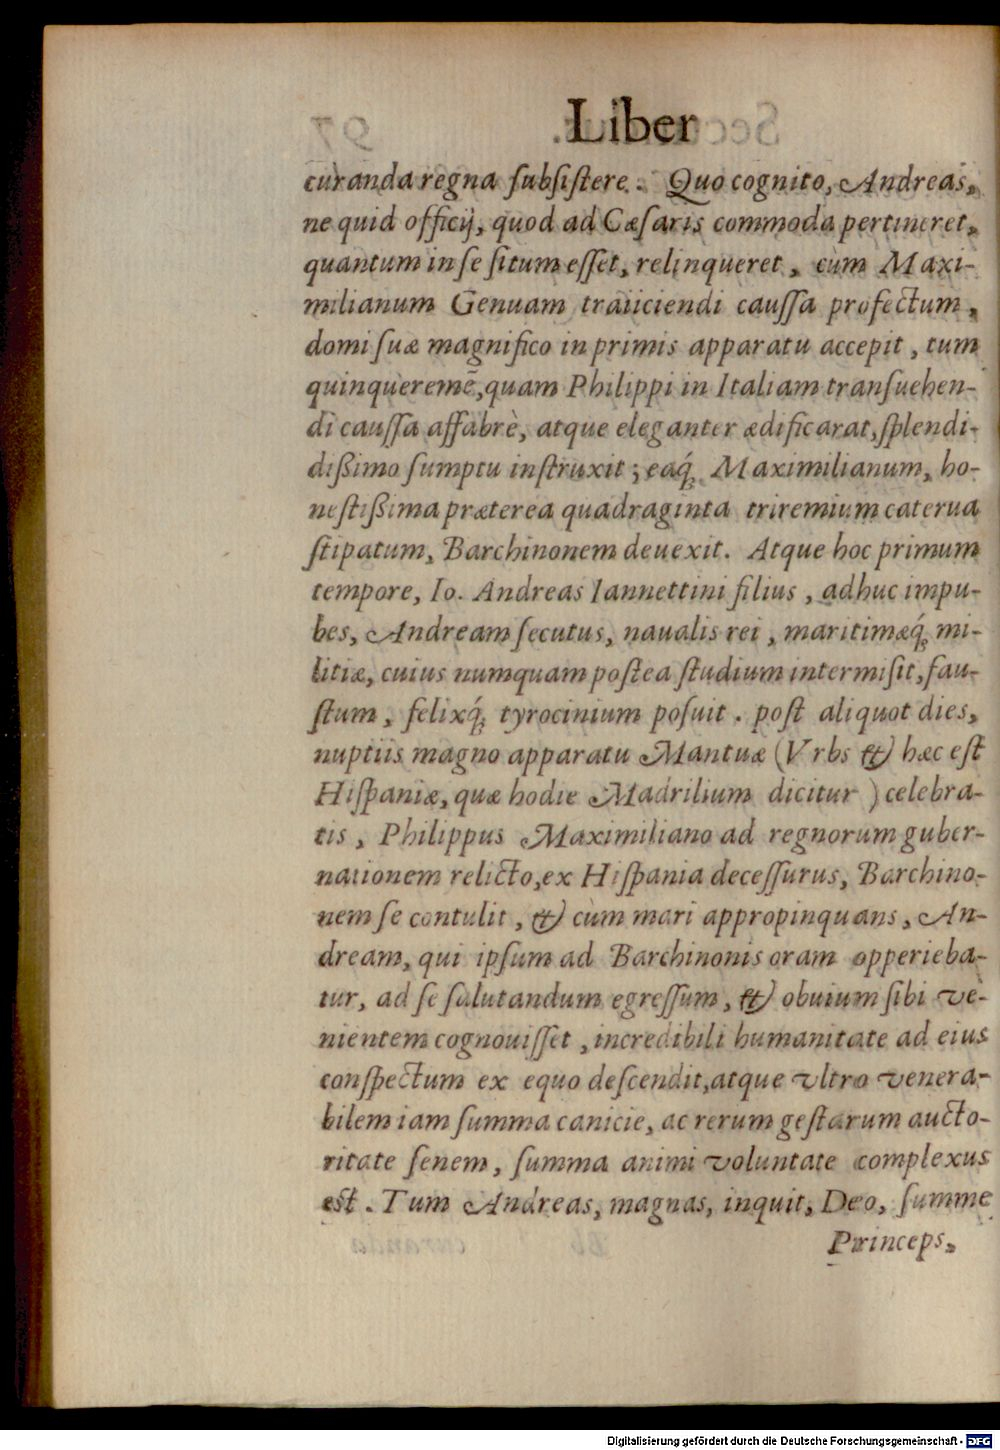 Liber
curanda regna ſubſiſtere. Quo cognito, Andreas,
ne quid officij, quod ad Cæſaris commoda pertineret,
quantum in ſe ſitum eſſet, relinqueret, cùm Maxi-
milianum Genuam traiiciendi cauſſa profectum,
domi ſuæ magnifico in primis apparatu accepit, tum
quinqueremē, quam Philippi in Italiam tranſuehen-
di cauſſa affabrè, atque eleganter ædificarat, ſplendi-
dißimo ſumptu inſtruxit; eaq́; Maximilianum, ho-
neſtißima præterea quadraginta triremium caterua
ſtipatum, Barchinonem deuexit. Atque hoc primum
tempore, Io. Andreas Iannettini filius, adhuc impu-
bes, Andream ſecutus, naualis rei, maritimæq́; mi-
litiæ, cuius numquam poſtea ſtudium intermiſit, fau-
ſtum, felixq́; tyrocinium poſuit. poſt aliquot dies,
nuptiis magno apparatu Mantuæ (Vrbs & hæc eſt
Hiſpaniæ, quæ hodie Madrilium dicitur) celebra-
tis, Philippus Maximiliano ad regnorum guber-
nationem relicto, ex Hiſpania deceſſurus, Barchino-
nem ſe contulit, & cùm mari appropinquans, An-
dream, qui ipſum ad Barchinonis oram opperieba-
tur, ad ſe ſalutandum egreſſum, & obuium ſibi ve-
nientem cognouiſſet, incredibili humanitate ad eius
conſpectum ex equo deſcendit, atque vltro venera-
bilem iam ſumma canicie, ac rerum geſtarum aucto-
ritate ſenem, ſumma animi voluntate complexus
eſt. Tum Andreas, magnas, inquit, Deo, ſumme
Princeps,
Digitalisierung gefördert durch die Deutsche Forschungsgemeinschaft - DFG